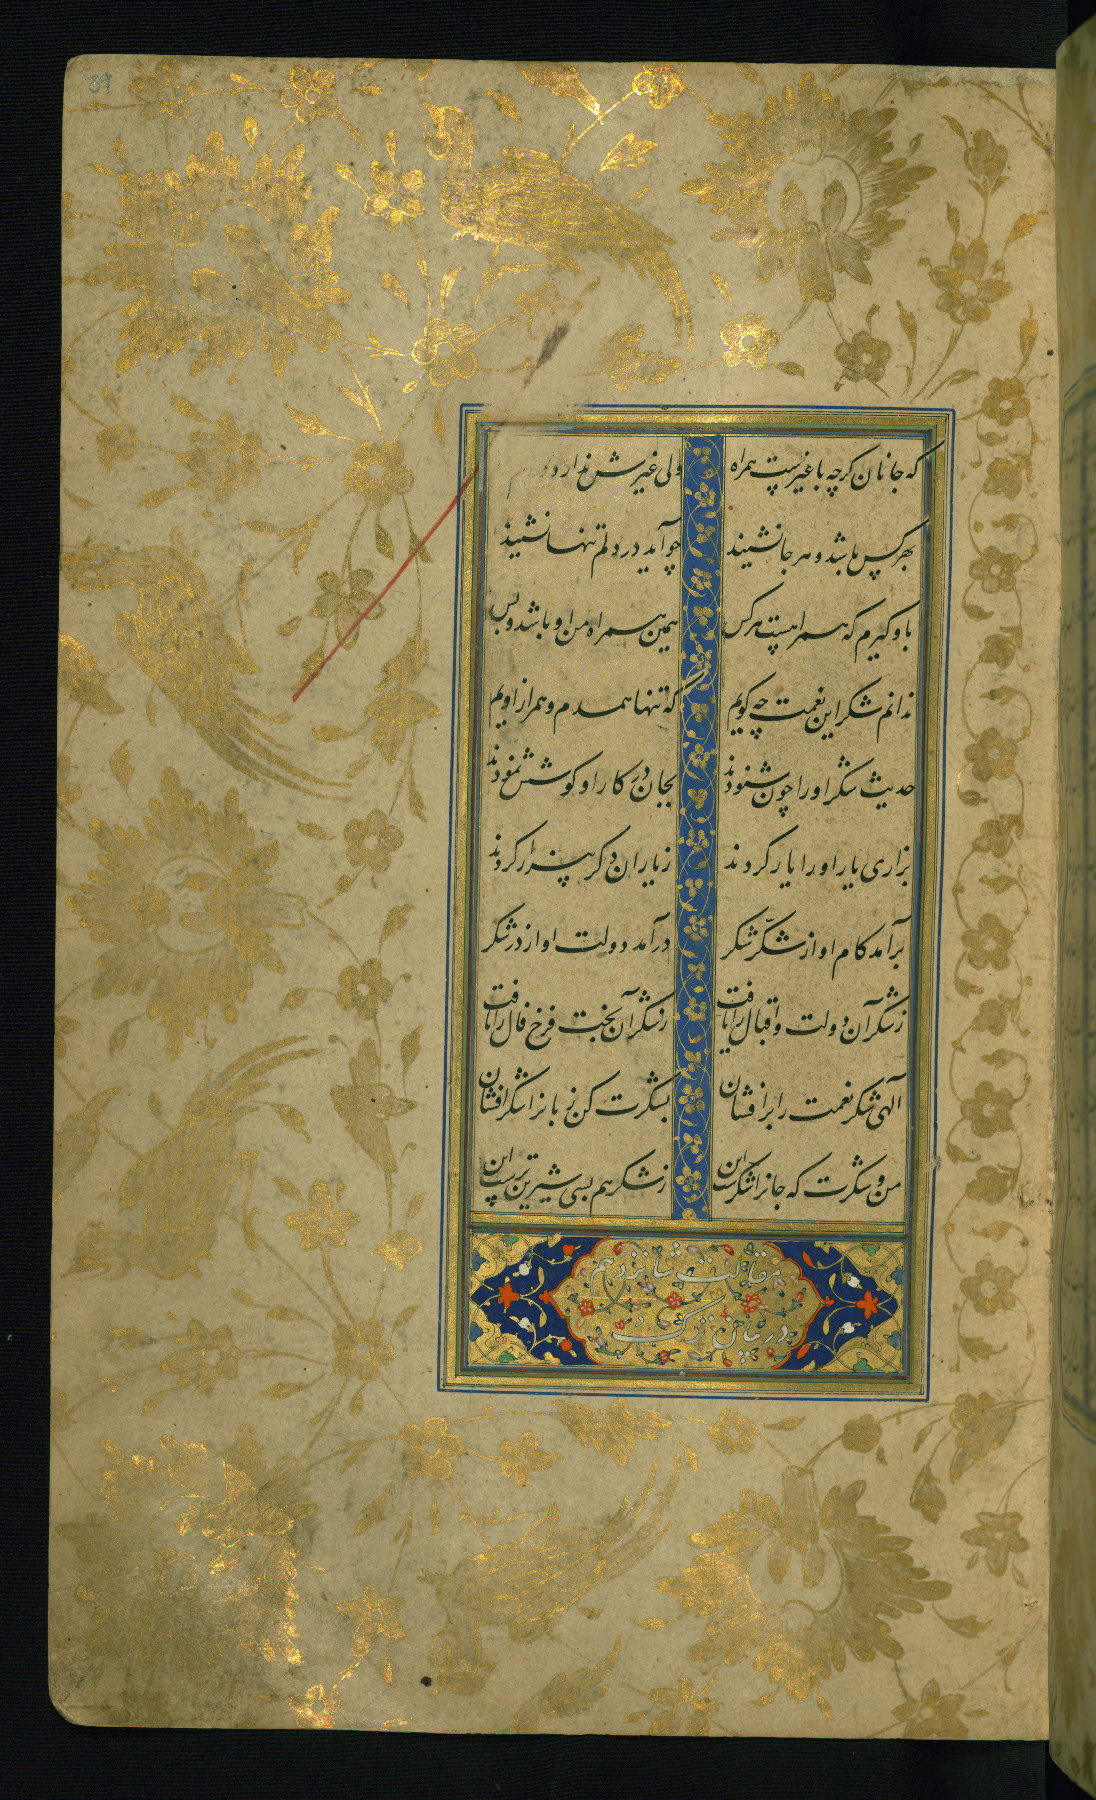 39
که جانان کرچه با غیرست همراه ولی غیرش ندارد
بهر کس باشد و هر جا نشیند چو آید در دلم تنها نشیند
باو کیرم که همراهست هر کس همین همراه من او باشد و بس
ندانم شکر این نعمت چه کویم که تنها همدم و همراز اویم
حدیث شکر او را چون شنودند بجان در کار او کوشش نمودند
بزاری یار او را یار کردند ز یاران دکر بیزار کردند
برآمد کام او از شکّر شکر درآمد دولت او از در شکر
ز شکر آن دولت و اقبال را یافت ز شکر آن بخت فرخ فال را یافت
الهی شکر نعمت را برافشان بشکرت کن زبانرا شکرافشان
من و شکرت که جانرا شکرست این ز شکر هم بسی شیرین ترست این
مقالت شانزدهم
در